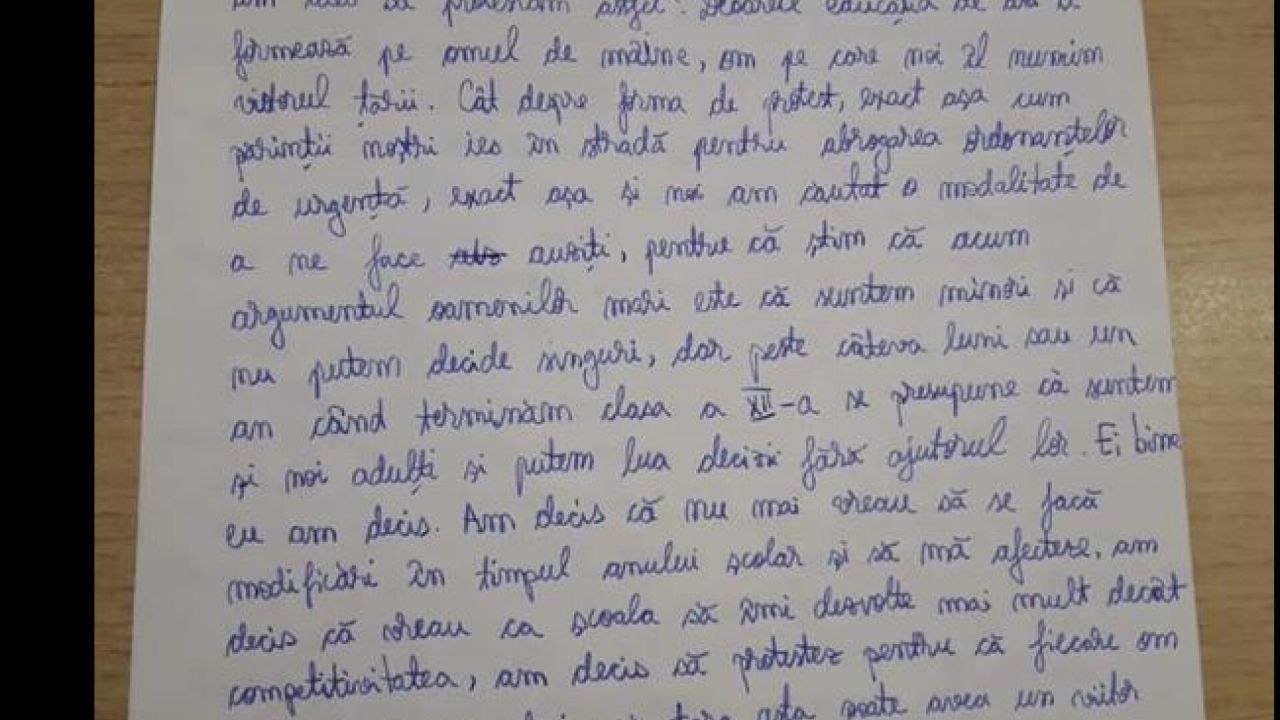 să prezentăm astfel: Deoarece educația de azi îl
formează pe omul de mâine, om pe care noi îl numim
viitorul țării. Cât despre forma de protest, exact așa cum
părinții noștri ies în stradă pentru abrogarea ordonanțelor
de urgență, exact așa și noi am căutat o modalitate de
a ne face auziți, pentru că știm că acum
argumentul oamenilor mari este că suntem minori și că
nu putem decide singuri, dar peste câteva luni sau un
an când terminăm clasa a XII-a se presupune că suntem
și noi adulți și putem lua decizii fără ajutorul lor. Ei bine
eu am decis. Am decis că nu mai vreau să se facă
modificări în timpul anului școlar și să mă afecteze, am
decis că vreau ca școala să îmi dezvolte mai mult decât
competitivitatea, am decis să protestez pentru că fiecare om
țara asta poate avea un viitor